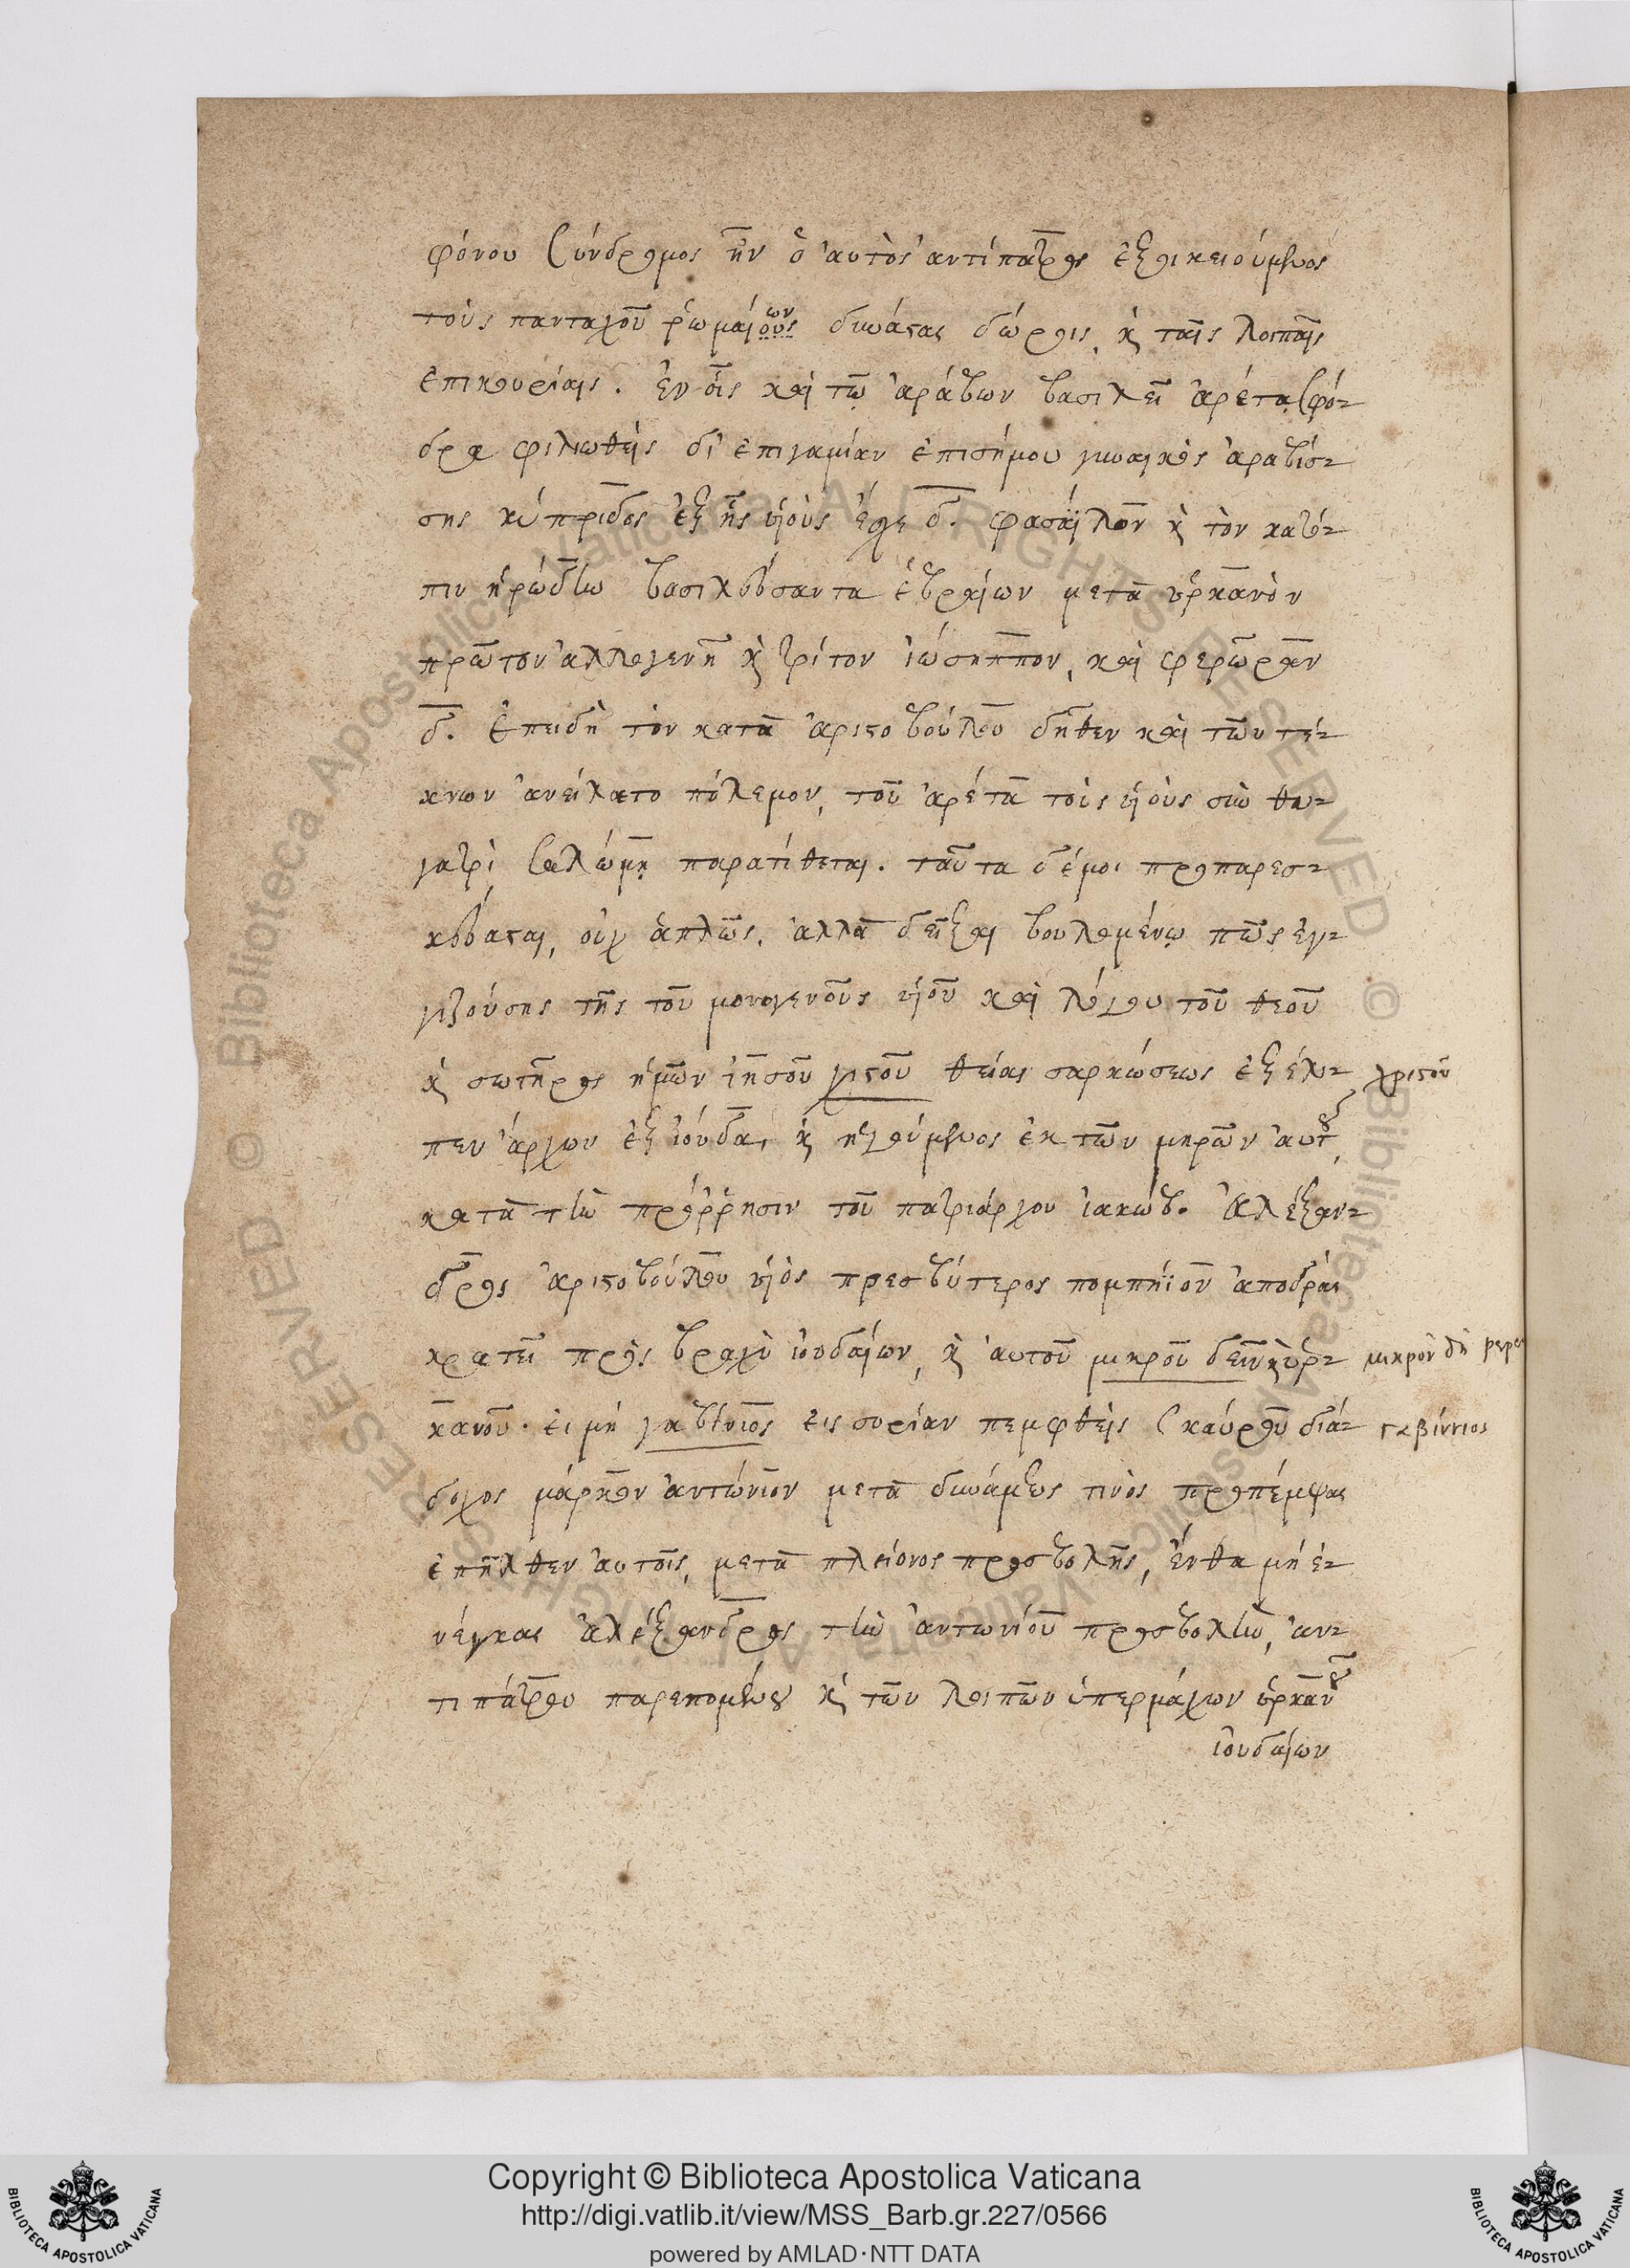 φόνου σύνδρομος ἦν ὁ αὐτὸς ἀντίπατρος ἐξοικειούμενος
τοὺς πανταχοῦ ῥωμαίους ων δυνάστας δώροις, κ ταῖς λοιπαῖς
ἐπικουρίαις. ἐν οἷς καὶ τῶ ἀράβων βασιλεῖ ἀρέτα σφό-
δρα φιλιωθεὶς δι ἐπιγαμίαν ἐπισήμου γυναικὸς ἀραβίσ-
σης κύπριδος ἐξ ἧς υἱοὺς ἔσχε δ. φασάϊλον κ τὸν κατό-
πιν ἡρώδην βασιλεύσαντα ἑβραίων μετὰ ὑρκανὸν
πρῶτον ἀλλογενῆ κ τρίτον ἰώσηππον, καὶ φερῶραν
δ. ἐπειδὴ τὸν κατὰ ἀριστοβούλου δῆθεν καὶ τῶν τέ-
κνων ἀνείλατο πόλεμον, τοῦ ἀρέτα τοὺς υἱοὺς σὺν θυ-
γατρὶ σαλώμη παρατίθεται. ταῦτα δέ μοι προπαρεσ-
κεύασται, οὐχ ἁπλῶς, ἀλλὰ δεῖξαι βουλομένω πῶς ἐγ-
γιζούσης τῆς τοῦ μονογενοῦς υἱοῦ καὶ λόγου τοῦ θεοῦ
κ σωτῆρος ἡμῶν ἰησοῦ χιστοῦ θείας σαρκώσεως ἐξέλι- χριστοῦ
πεν ἄρχων ἐξ ἰούδα, κ ἡγούμενος ἐκ τῶν μηρῶν αὐτοῦ,
κατὰ τὴν πρόῤῥησιν τοῦ πατριάρχου ἰακώβ. ἀλέξαν-
δρος ἀριστοβούλου υἱὸς πρεσβύτερος πομπηΐου ἀποδρὰς
κρατεῖ πρὸς βραχὺ ἰουδαίων, κ αὐτοῦ μικροῦ δεῖν κ ὑρ- μικρὸν δὴ
κανοῦ. εἰ μὴ γαβίνιος εἰς συρίαν πεμφθεὶς σκαύρου διά- γαβίννιος
δοχος μάρκον ἀντώνιον μετὰ δυνάμεως τινὸς προπέμψας
ἐπῆλθεν αὐτοῖς, μετὰ πλείονος προσβολῆς, ἔνθα μὴ ἐ-
νέγκας ἀλέξανδρος τὴν ἀντωνίου προσβολὴν, ἀν-
τιπάτρου παρεπομένου κ τῶν λοιπῶν ὑπερμάχων ὑρκανοῦ
ἰουδαίων
Copyright © Biblioteca Apostolica Vaticana
http://digi.vatlib.it/view/MSS_Barb.gr.227/0566
powered by AMLAD·NTT DATA
BIBLIOTECA APOSTOLICA VATICANA
BIBLIOTECA APOSTOLICA VATICANA